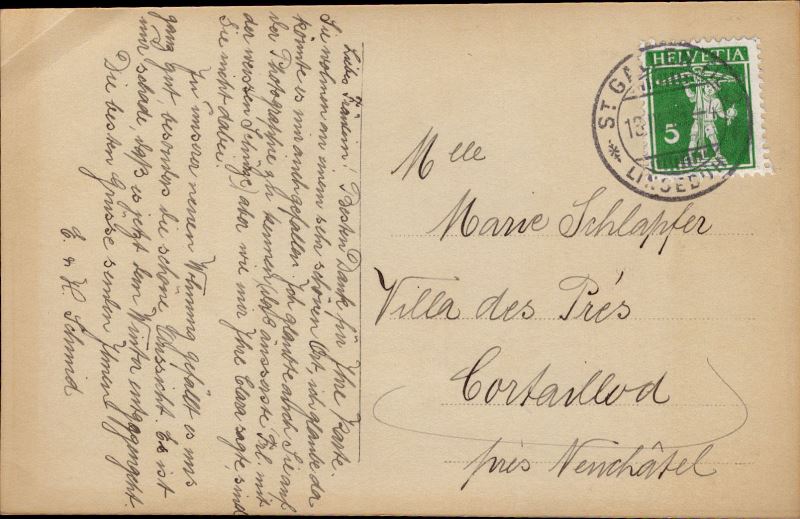 Liebes Fräulein! Besten Dank für Ihre Karte.
Sie wohnen an einem sehr schönen Ort, ich glaube da
könnte es mir auch gefallen. Ich glaubte auch Sie auf
der Photographie zu kennen (das äusserste Frl. mit
der weissen Schürze) aber wie mir Ihre Clara sagte sind
Sie nicht dabei.
In unserer neuen Wohnung gefällt es uns
ganz gut, besonders die schöne Aussicht. Es ist
nur schade, daß es jetzt dem Winter entgegengeht.
Die besten Grüsse senden Ihnen
E. & H. Schmid
HELVETIA
5
ST. GALLEN
LINSEBÜHL
Mlle
Marie Schlapfer
Villa des Prés
Cortaillod
près Neuchâtel